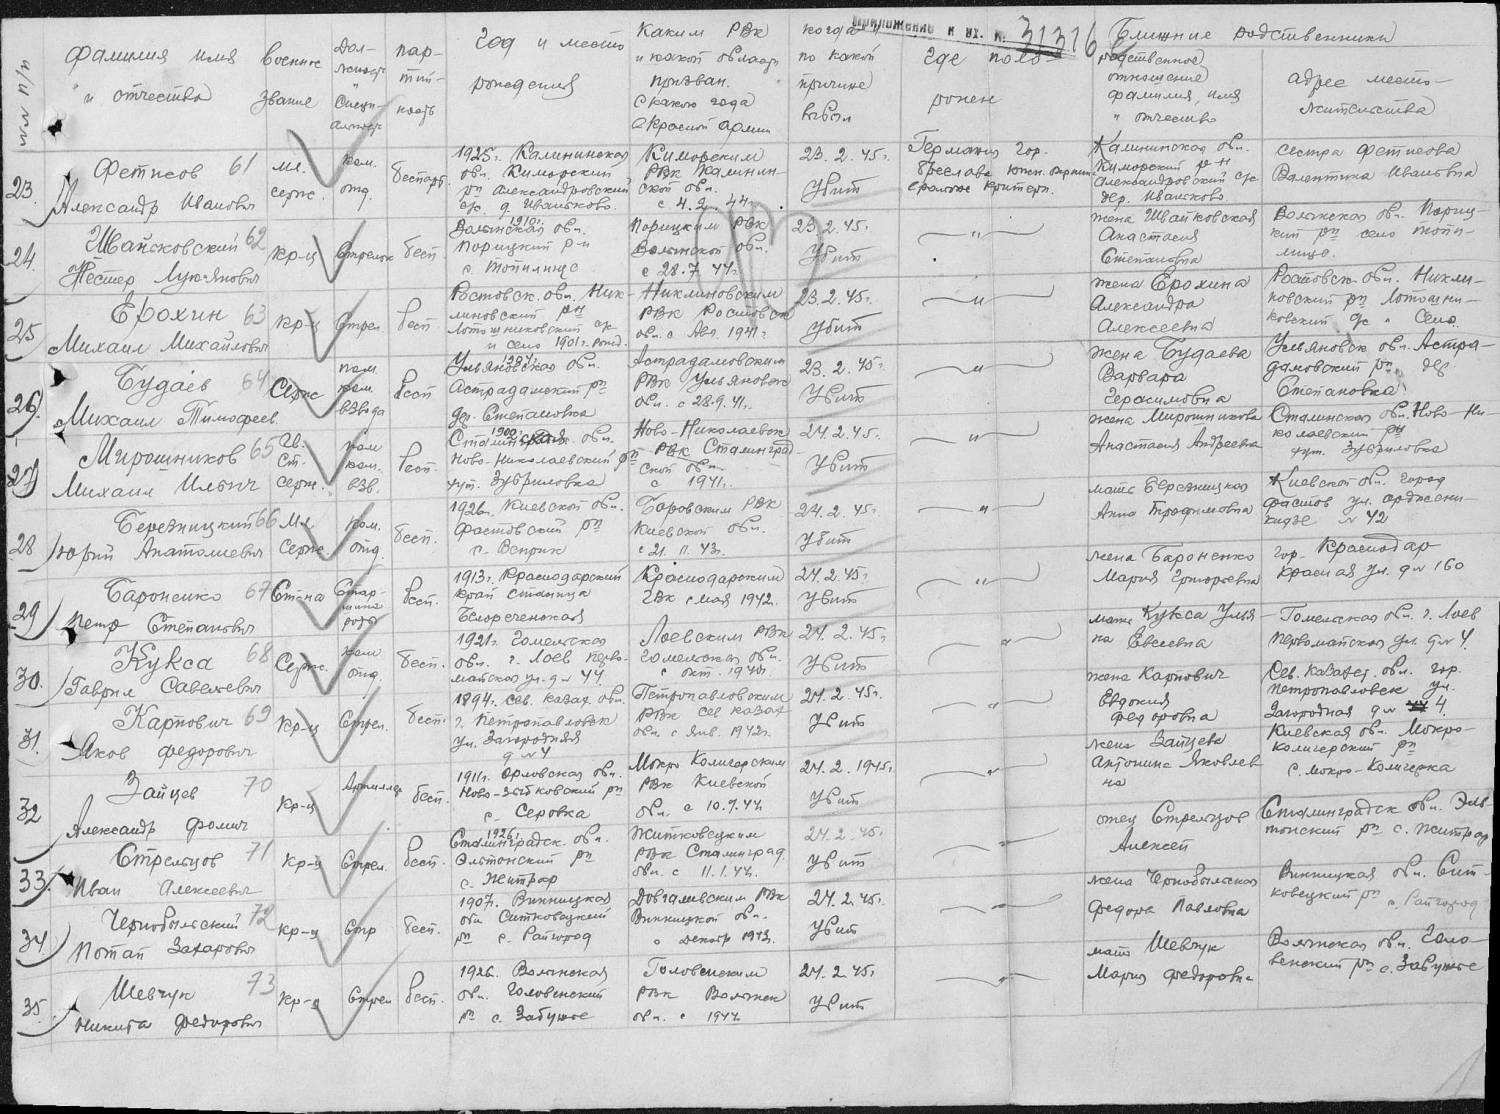 Приложение к вх. н. 31316
№№ п/п
Фамилия имя
и отчество
Военное
звание
Дол-
жность
специ-
альность
пар-
тий-
ность
Год и место
рождения
Каким РВК
и какой области
призван.
с какого года
в Красной армии
когда и
по какой
причине
выбыл
где похо-
ронен
Ближние родственники
родственное
отношение
фамилия, имя
и отчество
адрес место-
жительства
23.
Фетисов 61
Александр Иванович
мл.
сержс.
ком.
отд.
беспарт.
1925г. Калининская
обл. Кимрский
рн Александровский
с/с. д. Иваньково.
Кимрским
РВК Калинин-
ской обл.
с 4.2.44г.
23.2.45г.
убит
Германия гор.
Бреслава южн. окраин
Калининская обл.
Кимрский р-н
Александровский с/с
дер. Иваньково
сестра Фетисова
Валентина Ивановна
24.
Швайковский 62
Нестер Лукьянович
кр-ц
Стрелок
бесп
1910г.
Волынская обл.
Порицкий р-н
с. Топилище
Порицким РВК
Волынской обл.
с 28.7.44г.
23.2.45г.
Убит
— " —
жена Швайковская
Анастасия
Степановна
Волынская обл. Пориц-
кий рн село Топи-
лище.
25
Ерохин 63
Михаил Михайлович
кр-ц
Стрел.
бесп.
Ростовск. обл. Ник-
линовский рн
Лотошниковский с/с
и село 1901г. рожд.
Никлиновским
РВК Ростовск
обл. с Авг. 1941г.
23.2.45г.
убит
— " —
жена Ерохина
Александра
Алексеевна
Ростовск. обл. Никли-
новский рн Лотошни-
ковский с/с " Село.
26.
Будаев 64
Михаил Тимофеев.
Сержс
пом.
ком.
взвода
бесп
1907г.
Ульяновская обл.
Астрадамский рн
дер. Степановка
Астрадамовским
РВК Ульяновск
обл. с 28.9.41г.
23.2.45г.
Убит
— " —
жена Будаева
Варвара
Герасимовна
Ульяновск. обл. Астра-
дамовский рн дер.
Степановка
27
Мирошников 65
Михаил Ильич
Гв.
Ст.
серж.
пом
ком.
взв.
бесп.
1900г.
Сталинградская обл.
Ново-Николаевский рн
хут. Зубриловка
Ново-Николаевск
РВК Сталинград-
ской обл.
с 1941г.
24.2.45г.
Убит
— " —
жена Мирошникова
Анастасия Андреевна
Сталинская обл. Ново-Ни-
колаевский рн
хут. Зубриловка
28
Бережницкий 66
Юрий Анатолиевич
Мл.
Сержс.
ком.
отд.
бесп.
1926г. Киевской обл.
Фастовский рн
с. Веприк
Боровским РВК
Киевской обл.
с 21.11.43г.
24.2.45г.
Убит
— " —
мать Бережницкая
Анна Трофимовна
Киевской обл. город
Фастов ул. Орджони-
кидзе № 42
29
Бароненко 67
Петр Степанович
Ст-на
Стар-
шина
роты
бесп.
1913г. Краснодарский
край станица
Белореченская
Краснодарским
ГВК с мая 1942г.
24.2.45г.
Убит
— " —
жена Бароненко
Мария Григорьевна
гор. Краснодар
Красная ул. д № 160
30.
Кукса 68
Гаврил Савельевич
Сержс.
ком
отд.
бесп.
1921г. Гомельская
обл. г. Лоев Перво-
майская ул. д № 44.
Лоевским РВК
Гомельская обл.
с окт. 1940г.
24.2.45г
Убит
— " —
мать Кукса Улья-
на Евсеевна
Гомельская обл. г. Лоев
Первомайская ул. д № 4.
31.
Карпович 69
Яков Федорович
кр-ц
Стрел.
бесп.
1894г. Сев. Казах. обл.
г. Петропавловск
ул. Загородная
д № 4
Петропавловским
РВК Сев Казах
обл. с янв. 1942г.
24.2.45г.
Убит
— " —
жена Карпович
Евдокия
Федоровна
Сев. Казахст. обл. гор.
Петропавловск ул.
Загородная д № 4.
32
Зайцев 70
Александр Фомич
кр-ц
Артиллер
бесп.
1911г. Орловская обл.
Ново-Зыбковский рн
с. Серовка
Мокро Калигорским
РВК Киевской
обл. с 10.1.44.
24.2.1945г.
Убит
— " —
жена Зайцева
Антонина Яковлев-
на
Киевская обл. Мокро-
Калигерский рн
с. Мокро-Калигерка
33.
Стрельцов 71
Иван Алексеевич
кр-ц
Стрел.
бесп.
1926г.
Сталинградск. обл.
Эльтонский рн
с. Житрар
Житковецким
РВК Сталинград.
обл. с 11.1.44.
24.2.45г.
Убит
— " —
отец Стрельцов
Алексей
Сталинградск обл. Эль-
тонский рн с. Житрар
34.
Чернобыльский 72
Потап Захарович
кр-ц
Стр
бесп.
1907г. Винницкая
обл Ситковецкий
рн с. Райгород
Довгалевским РВК
Винницкой обл.
с декабр 1943г.
24.2.45г.
Убит
— " —
жена Чернобыльская
Федора Павловна
Винницкая обл. Сит-
ковецкий рн с. Райгород
35.
Шевчук 73
Никита Федорович
кр-ц
Стрел
бесп.
1926г. Волынская
обл. Головенский
рн с. Забужье
Головенским
РВК Волынск
обл. с 1944г.
24.2.45г
Убит
— " —
мать Шевчук
Мария Федоровна
Волынская обл. Голо-
венский рн с. Забужье